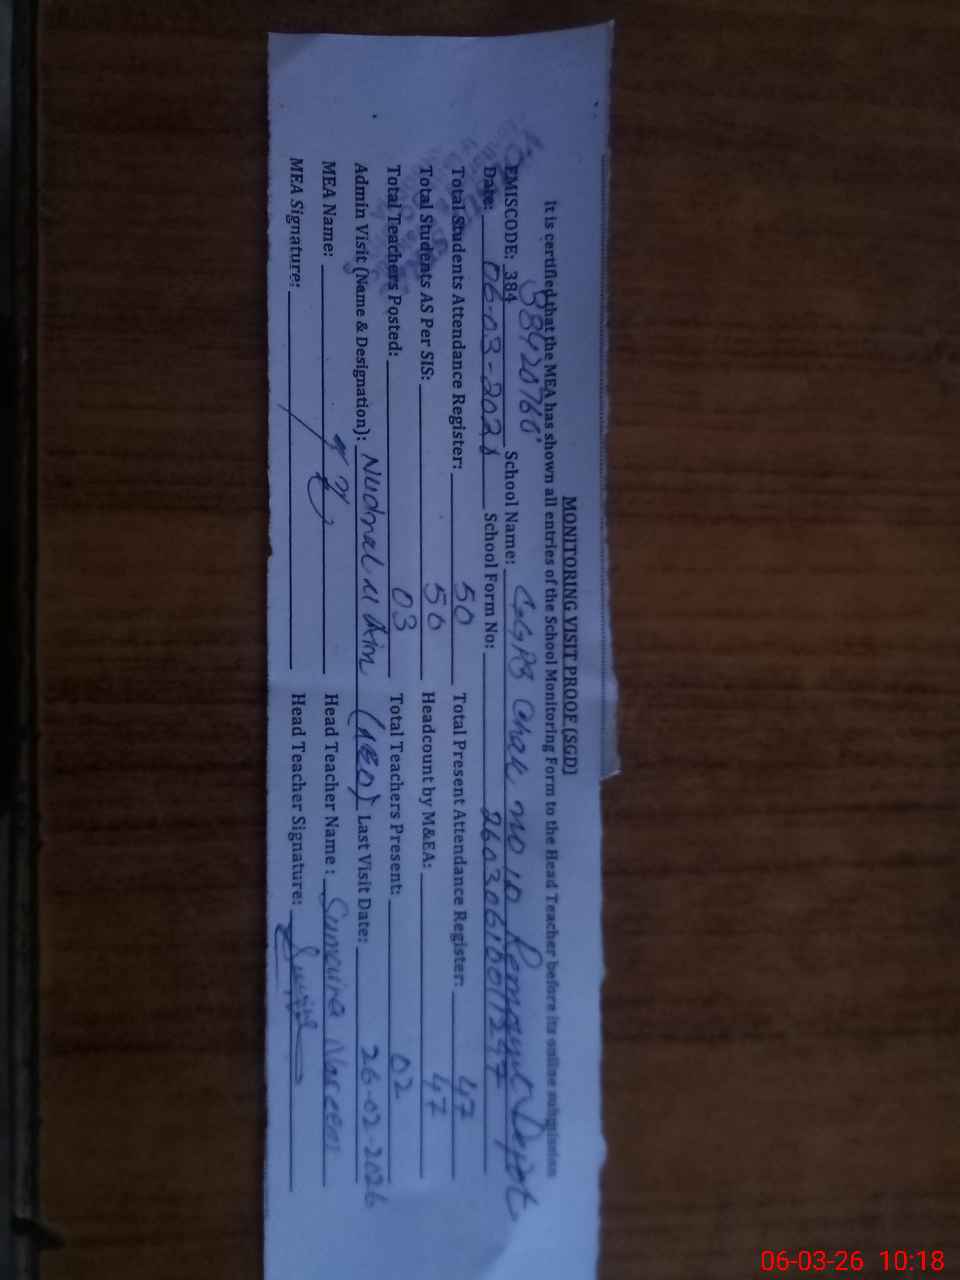 MONITORING VISIT PROOF (SGD)
It is certified that the MEA has shown all entries of the School Monitoring Form to the Head Teacher before its online submission
EMISCODE: 384 38420760 School Name: GGPS Chak no 10 Remount Depot
Date: 06-03-2026 School Form No: 
Total Students Attendance Register: 50 Total Present Attendance Register: 47
Total Students AS Per SIS: 50 Headcount by M&EA: 47
Total Teachers Posted: 03 Total Teachers Present: 02
Admin Visit (Name & Designation): (AEO) Last Visit Date: 26-02-2026
MEA Name: Head Teacher Name :
MEA Signature: Head Teacher Signature:
06-03-26 10:18